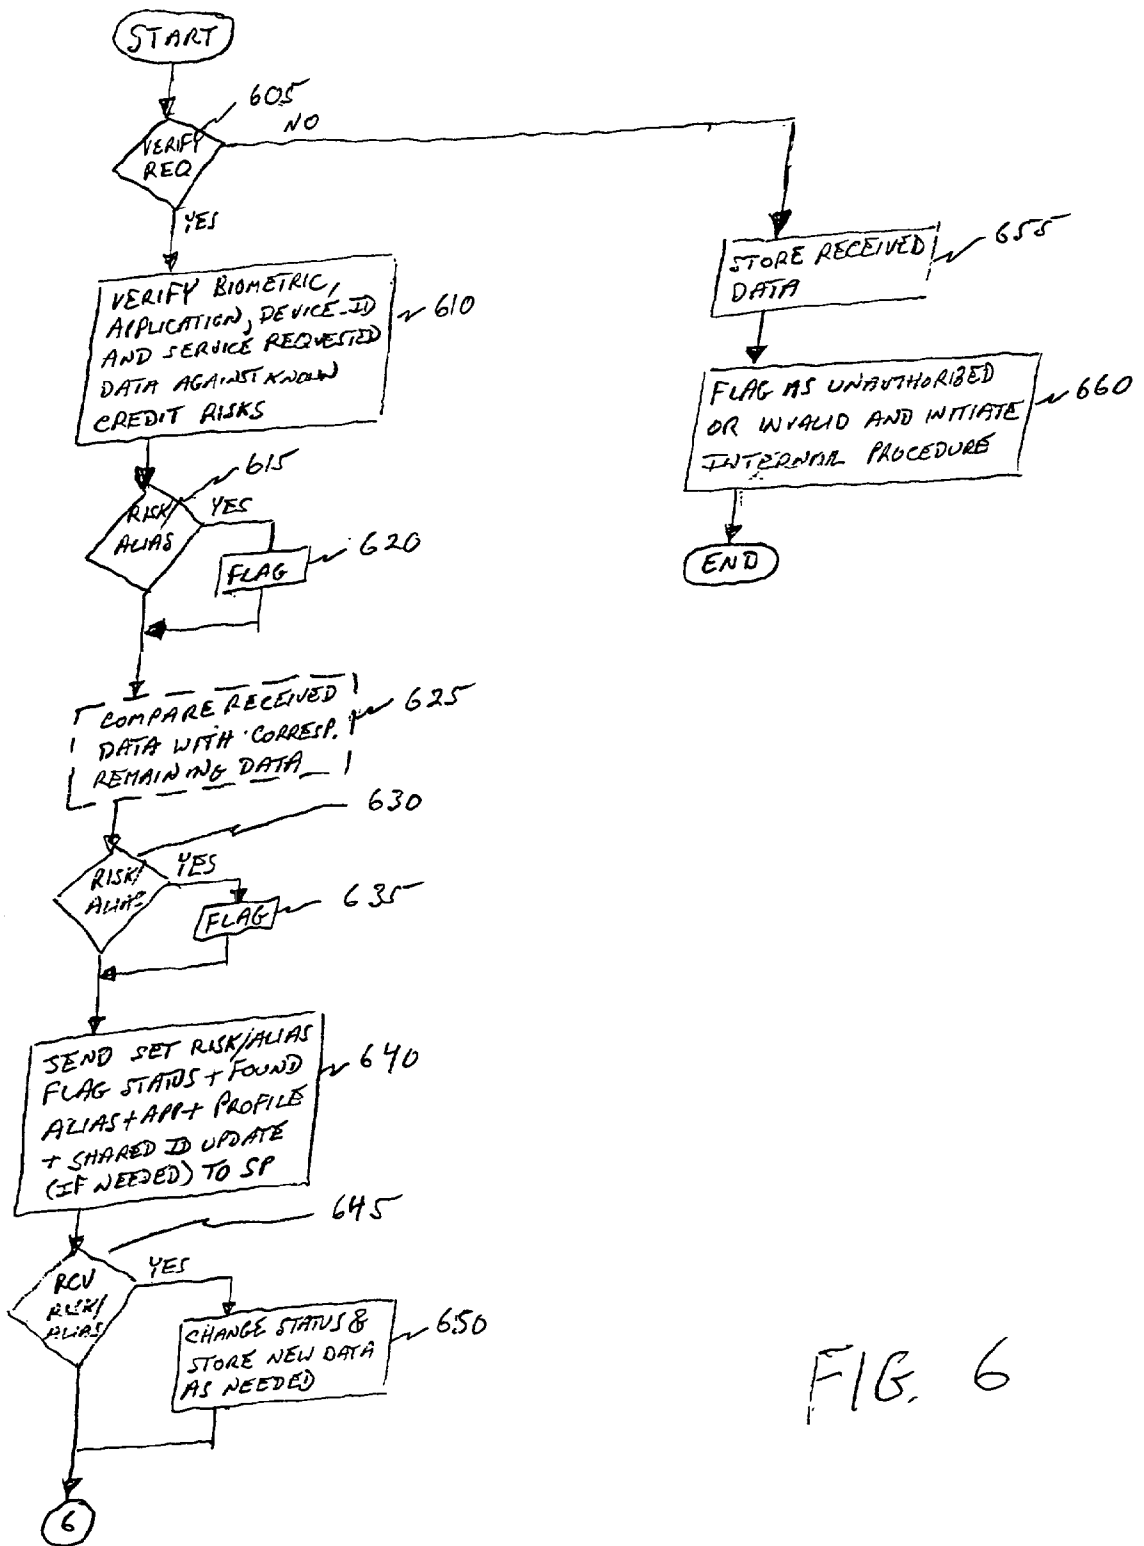 START
605
NO
VERIFY
REQ
YES
VERIFY BIOMETRIC,
APPLICATION, DEVICE-ID
AND SERVICE REQUESTED
DATA AGAINST KNOWN
CREDIT RISKS
610
615
RISK/
ALIAS
YES
FLAG
620
COMPARE RECEIVED
DATA WITH CORRESP.
REMAINING DATA
625
630
RISK/
ALIAS
YES
FLAG
635
SEND SET RISK/ALIAS
FLAG STATUS + FOUND
ALIAS + APP + PROFILE
+ SHARED ID UPDATE
(IF NEEDED) TO SP
640
645
RCV
RISK/
ALIAS
YES
CHANGE STATUS &
STORE NEW DATA
AS NEEDED
650
6
STORE RECEIVED
DATA
655
FLAG AS UNAUTHORIZED
OR INVALID AND INITIATE
INTERNAL PROCEDURE
660
END
FIG. 6